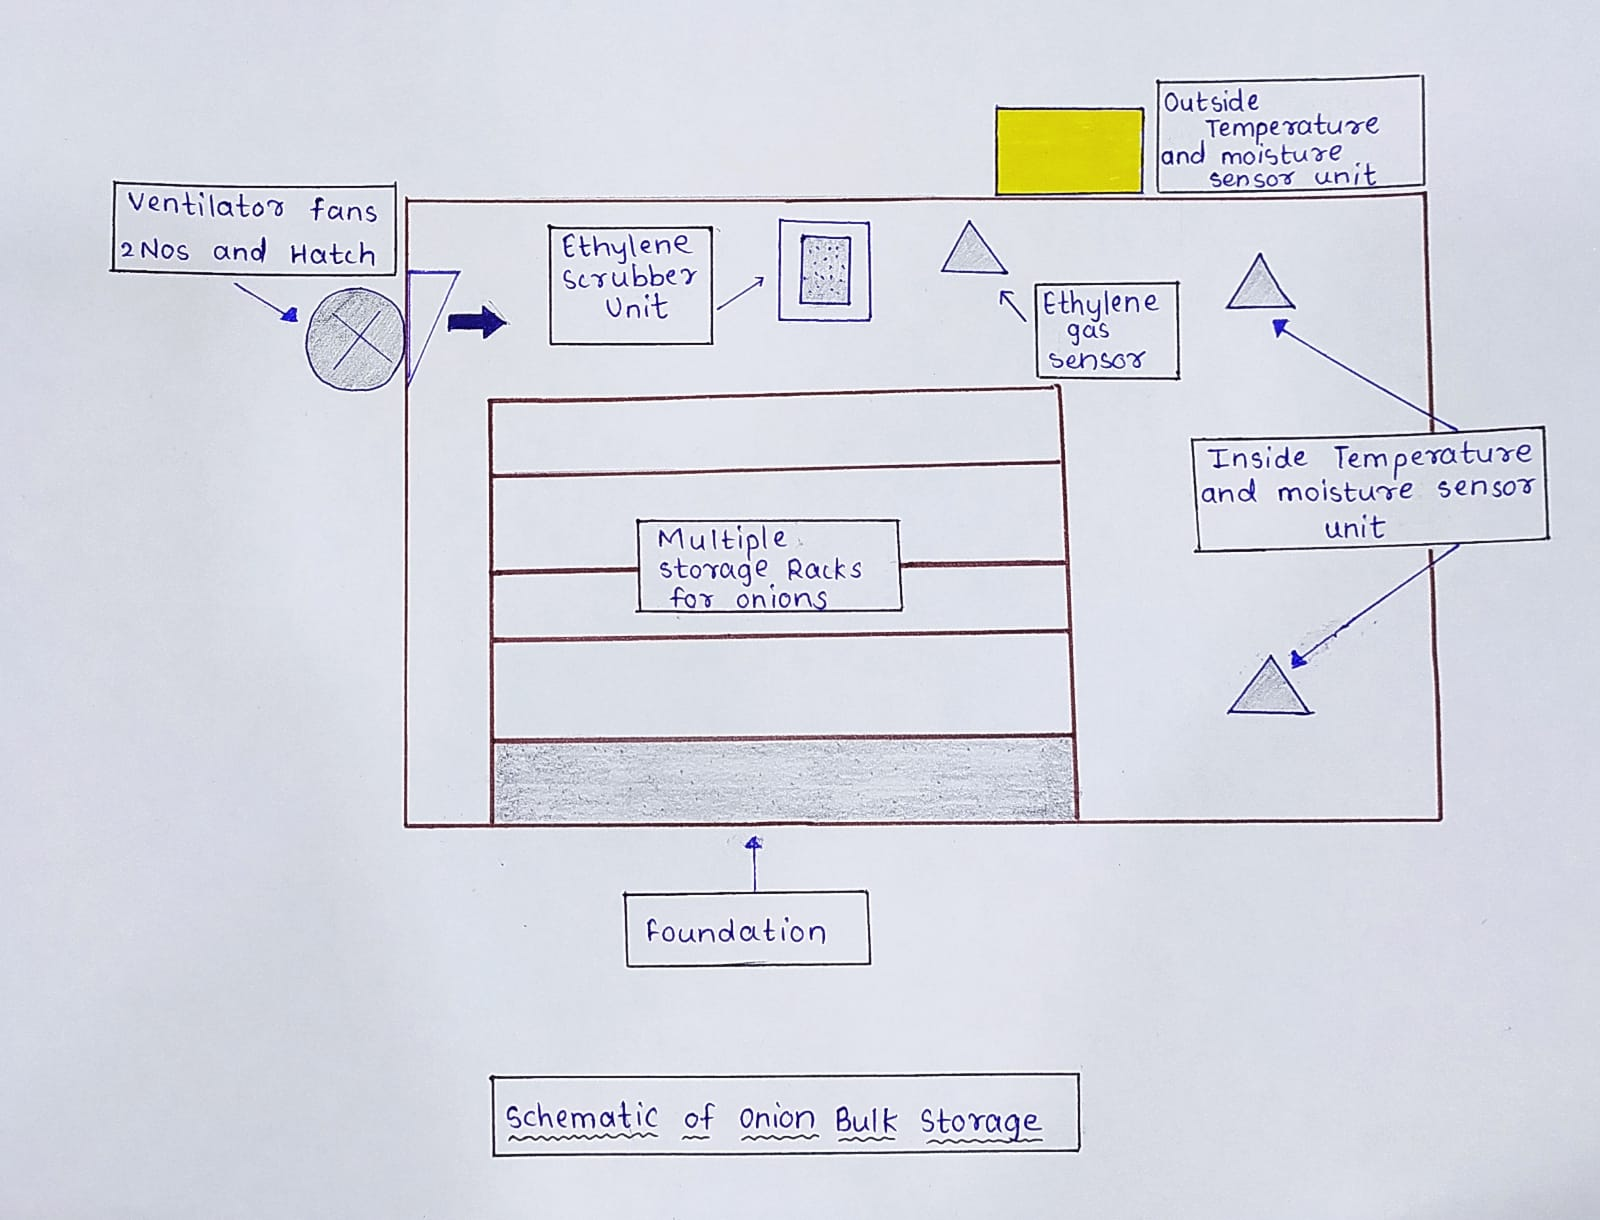 Outside
Temperature
and moisture
sensor unit
Ventilator fans
2 Nos and Hatch
Ethylene
Scrubber
Unit
Ethylene
gas
sensor
Inside Temperature
and moisture sensor
unit
Multiple
storage Racks
for onions
Foundation
Schematic of Onion Bulk Storage